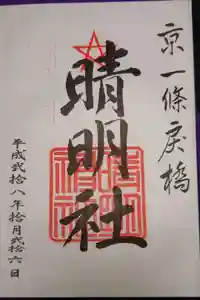 京一條戻橋
晴明社
平成弐拾八年拾月弐拾六日